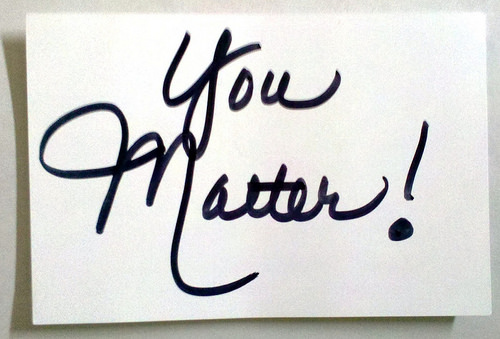 You
Matter!